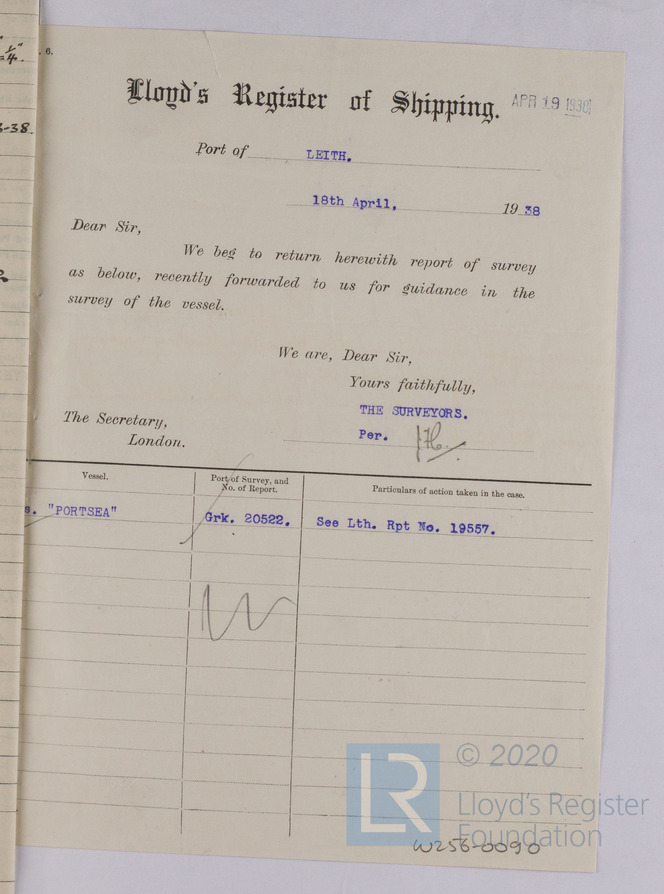 ¼".
6.
3-38.
Lloyd's Register of Shipping.
APR 19 1938
Port of LEITH.
18th April, 19 38
Dear Sir,
We beg to return herewith report of survey
as below, recently forwarded to us for guidance in the
survey of the vessel.
We are, Dear Sir,
Yours faithfully,
THE SURVEYORS.
Per.
The Secretary,
London.
Vessel. Port of Survey, and No. of Report. Particulars of action taken in the case.
s. "PORTSEA" Grk. 20522. See Lth. Rpt No. 19557.
LR
© 2020
Lloyd's Register
Foundation
W256-0090